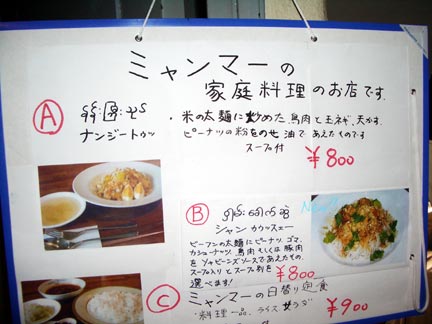 ミャンマーの
家庭料理のお店です.
A
ナンジートゥッ
・米の太麺に炒めた鳥肉と玉ネギ、天かす
ピーナツの粉をのせ油であえたものです
スープ付
¥800
B
シャンカウッスェー
ビーフンの太麺にピーナツ、ゴマ、
カシューナッツ、鳥肉もしくは豚肉
をソヤビーンズソースであえたもの、
スープ入りとスープ別を
選べます!
¥800
C
ミャンマーの日替り定食
"料理一品、ライス、サラダ"
¥900